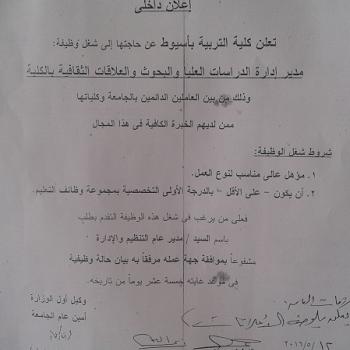 إعلان داخلى
تعلن كلية التربية بأسيوط عن حاجتها إلى شغل وظيفة:
مدير إدارة الدراسات العليا والبحوث والعلاقات الثقافية بالكلية
وذلك من بين العاملين الدائمين بالجامعة وكلياتها
ممن لديهم الخبرة الكافية فى هذا المجال
شروط شغل الوظيفة:
١. مؤهل عالى مناسب لنوع العمل.
٢. أن يكون – على الأقل – بالدرجة الأولى التخصصية بمجموعة وظائف التعليم.
فعلى من يرغب فى شغل هذه الوظيفة التقدم بطلب
باسم السيد / مدير عام التنظيم والإدارة
مشفوعاً بموافقة جهة عمله مرفقاً به بيان حالة وظيفية
فى موعد غايته خمسة عشر يوماً من تاريخه.
وكيل أول الوزارة
أمين عام الجامعة
٢٠١٦/٥/١٢